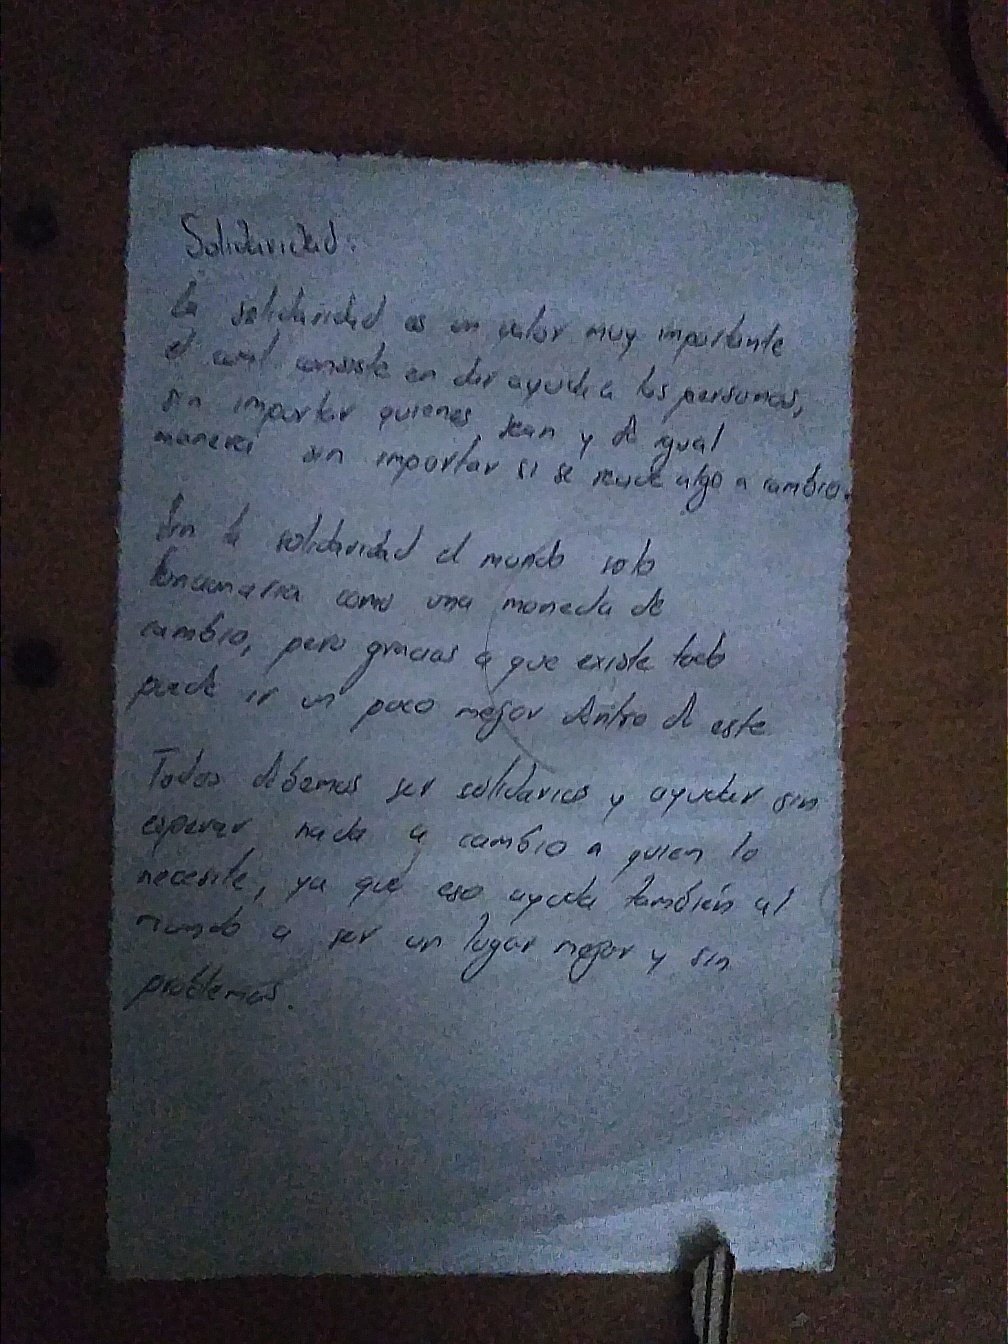 Solidaridad:
La solidaridad es un valor muy importante
el cual consiste en dar ayuda a las personas,
sin importar quienes sean y de igual
manera sin importar si se recibe algo a cambio.
Sin la solidaridad el mundo solo
funcionaria como una moneda de
cambio, pero gracias a que existe todo
puede ir un poco mejor dentro de este
Todos debemos ser solidarios y ayudar sin
esperar nada a cambio a quien lo
necesite, ya que eso ayuda también al
mundo a ser un lugar mejor y sin
problemas.